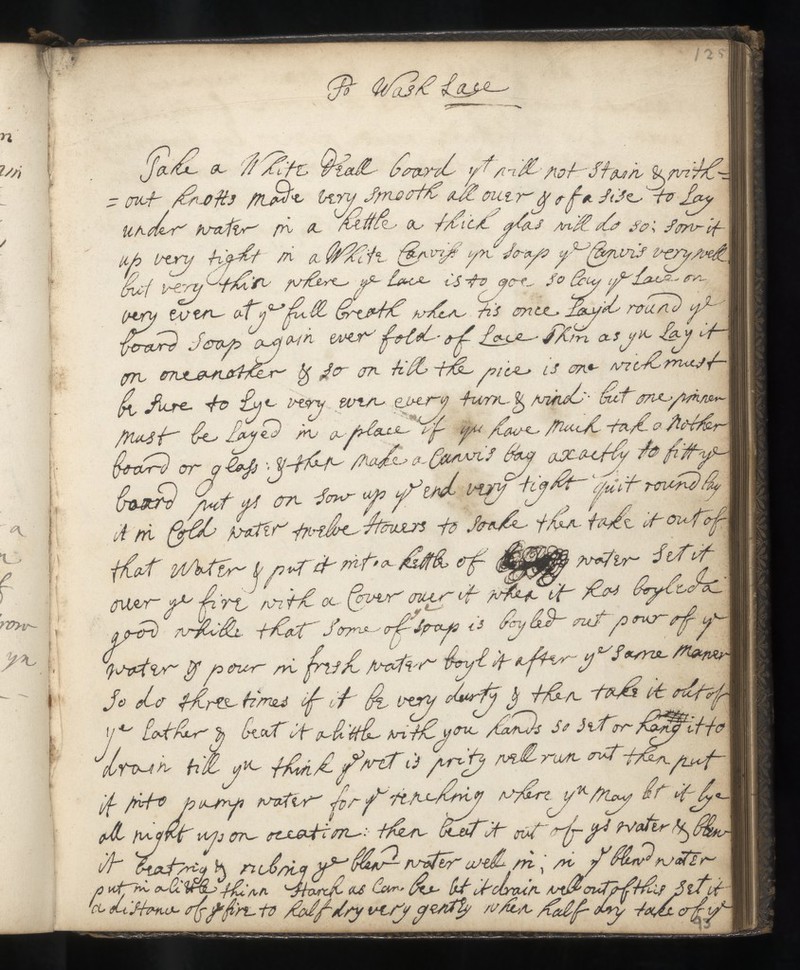 125
To Wash Lace
Take a White Deall board yt will not Stain & with=
=out knotts made very smooth all ouer & of a sise to Lay
under water in a kettle a thick glas will do so; sow it
up very tight in a White Canviss yn soap ye Canvis very well
but very thin where ye Lace is to goe so lay ye Lace on
very even at ye full breath when tis once Layd round ye
board Soap again ever fold of Lace thin as yu Lay it
on one another & so on till the pice is one wich must
be sure to Lye very even every turn & wind: but one pinner
must be Layed in a place if yu have Much tak a Nother
board or glass: & then make a Canvis bag axactly to fitt ye
board put ys on sow up ye end very tight quit round lay
it in Cold water twelve Houers to soake then take it out of
that Water & put it into a kettle of water Set it
ouer ye fire with a Cover ouer it when it has boyled a
good while that Some of ye soap is boyled out pour of ye
water & pour in fresh water boyl it after ye same Maner
So do three times if it be very durty & then take it out of
ye Lather & beat it a little with you hands so set or hang it to
drain till yu think ye wet is prity well run out then put
it into pump water for ye renching where yu May let it lye
all night upon occation: then beet it out of ys water & blew
it beating & rubing ye blew'd water well in; in ye blewd water
put in a little thinn Starch as Can bee let it drain well out of this Set it
a distance of ye fire to half dry very gently when half dry take of ye
93
a
yn